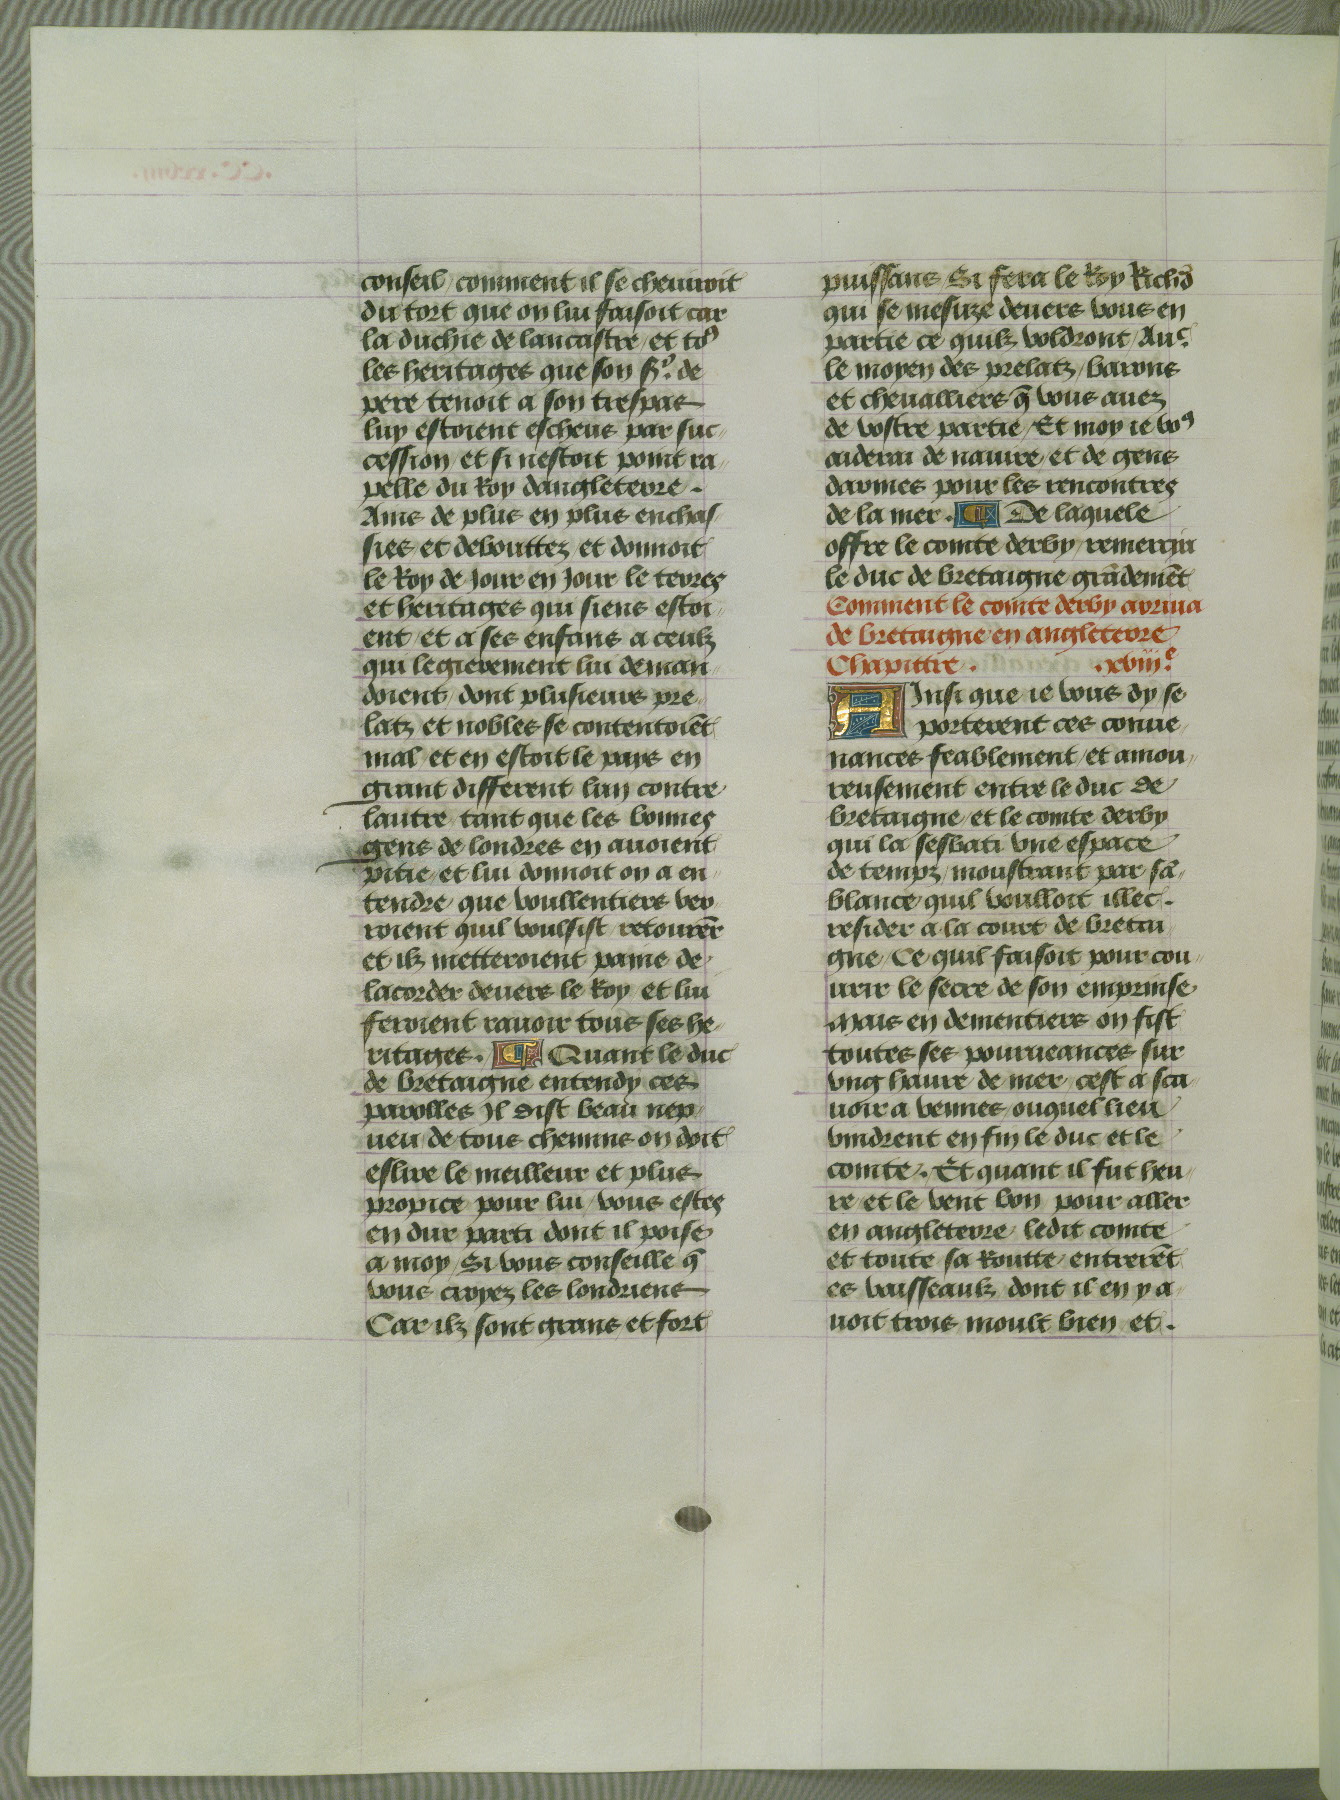 conseil / comment il se cheuiroit
du tort que on lui faisoit car
la duchie de lancastre / et toꝰ
les heritages que son sʳ. de
pere tenoit a son trespas
luy estoient escheus par suc-
cession et si nestoit point ra-
pelle du Roy dangleterre .
Ains de plus en plus enchas-
sies et debouttez et donnoit
le Roy de Jour en Jour le terres
et heritages qui siens estoi-
ent / et a ses enfans a ceulz
qui legierement lui deman-
doient / dont plusieurs pre-
latz et nobles se contentoiēt
mal / et en estoit le pays en
grant different lun contre
lautre / tant que les bonnes
gens de londres en auoient
pitie / et lui donnoit on a en-
tendre que voullentiers ver-
roient quil voulsist retourēr
et ilz metteroient paine de
lacorder deuers le Roy et lui
feroient rauoir tous ses he-
ritages . ¶ Quant le duc
de bretaigne entendy ces
parolles Il dist beau nep-
ueu / de tous chemins on doit
eslire le meilleur et plus
propice pour lui / vous estes
en dur parti dont il poise
a moy / Si vous conseille q̄
vous croyez les londriens
Car ilz sont grans et fort
puissans / Si fera le Roy Richd̄
qui se mesuze deuers vous en
partie ce quilz voldront / Auᶜ.
le moyen des prelatz / barons
et chevalliers q̄ vous auez
de vostre partie / Et moy ie voꝰ
aiderai de nauire et de gens
darmes pour les rencontres
de la mer . ¶ De laquele
offre le comte derby / remercia
le duc de bretaigne grādemēt
Comment le comte derby arriua
de bretaigne en angleterre
Chapittre . .xviijᵉ.
AInsi que ie vous dy se
porterent ces conue-
nances feablement / et amou-
reusement entre le duc de
bretaigne / et le comte derby
qui la sesbati vne espace
de tempz / monstrant par sā-
blance / quil voulloit illec .
resider a la court de bretai-
gne / Ce quil faisoit pour cou-
urir le secre de son emprinse
Mais en dementiers on fist
toutes ses pourueances sur
vng haure de mer / cest a sca-
uoir a vennes / ouquel lieu
vindrent en fin le duc et le
comte . Et quant il fut heu-
re et le vent bon pour aller
en angleterre / ledit comte
et toute sa Routte entrerēt
es vaisseaulz dont il en y a-
uoit trois moult bien et .